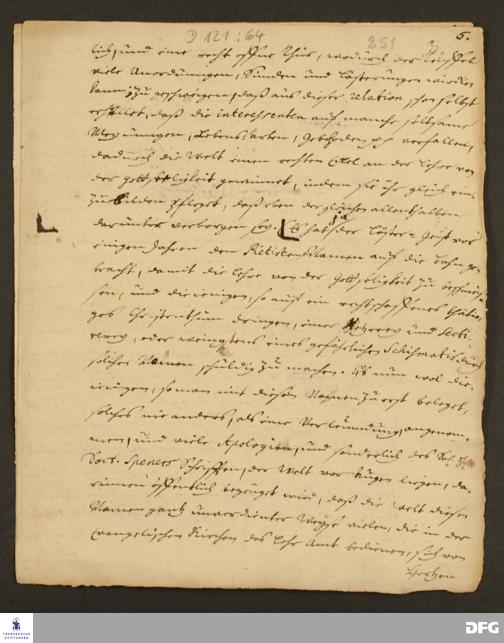 D 121 : 64
251
5.
lich, und eine recht offne Thür, wodurch der Teuffel
viele Unordnungen, Sünden und Lästerungen wircken
kann, zu geschweigen, daß aus dieser relation schon selbst
erhellet, daß die interessenten auf manche seltsame
Meynungen, Lebens-arten, Gebehrden pp verfallen,
dadurch die Welt einen rechten Ekel an der Lehre von
der Gottseligkeit gewinnet, indem sie ihr gleich ein-
zubilden pfleget, daß eben dergleichen allenthalben
darunter verborgen sey. Es hat ja der Läster-Geist vor
einigen Jahren den Pietisten-Namen auf die Bahn ge-
bracht, damit die Lehre von der Gottseligkeit zu
und diejenigen, so auf ein rechtschaffenes thäti-
ges Christenthum dringen, einer Ketzerey und Secti-
rerey, oder wenigstens eines gefährlichen Schismatis durch
solchen Namen schuldig zu machen. Ob nun wol die-
jenigen, so man mit diesem Namen zuerst beleget,
solches nie anders, als eine Verleumdung, angenom-
men, und viele Apologien, und sonderlich des
Doct. Speners Schrifften, der Welt vor Augen liegen, da-
rinnen öffentlich bezeuget wird, daß die Welt diesen
Namen gantz unverdienter Weyse vielen, die in der
Evangelischen Kirchen das Lehr Amt bedienen, sich von
Hertzen
FRANCKESCHE STIFTUNGEN
DFG